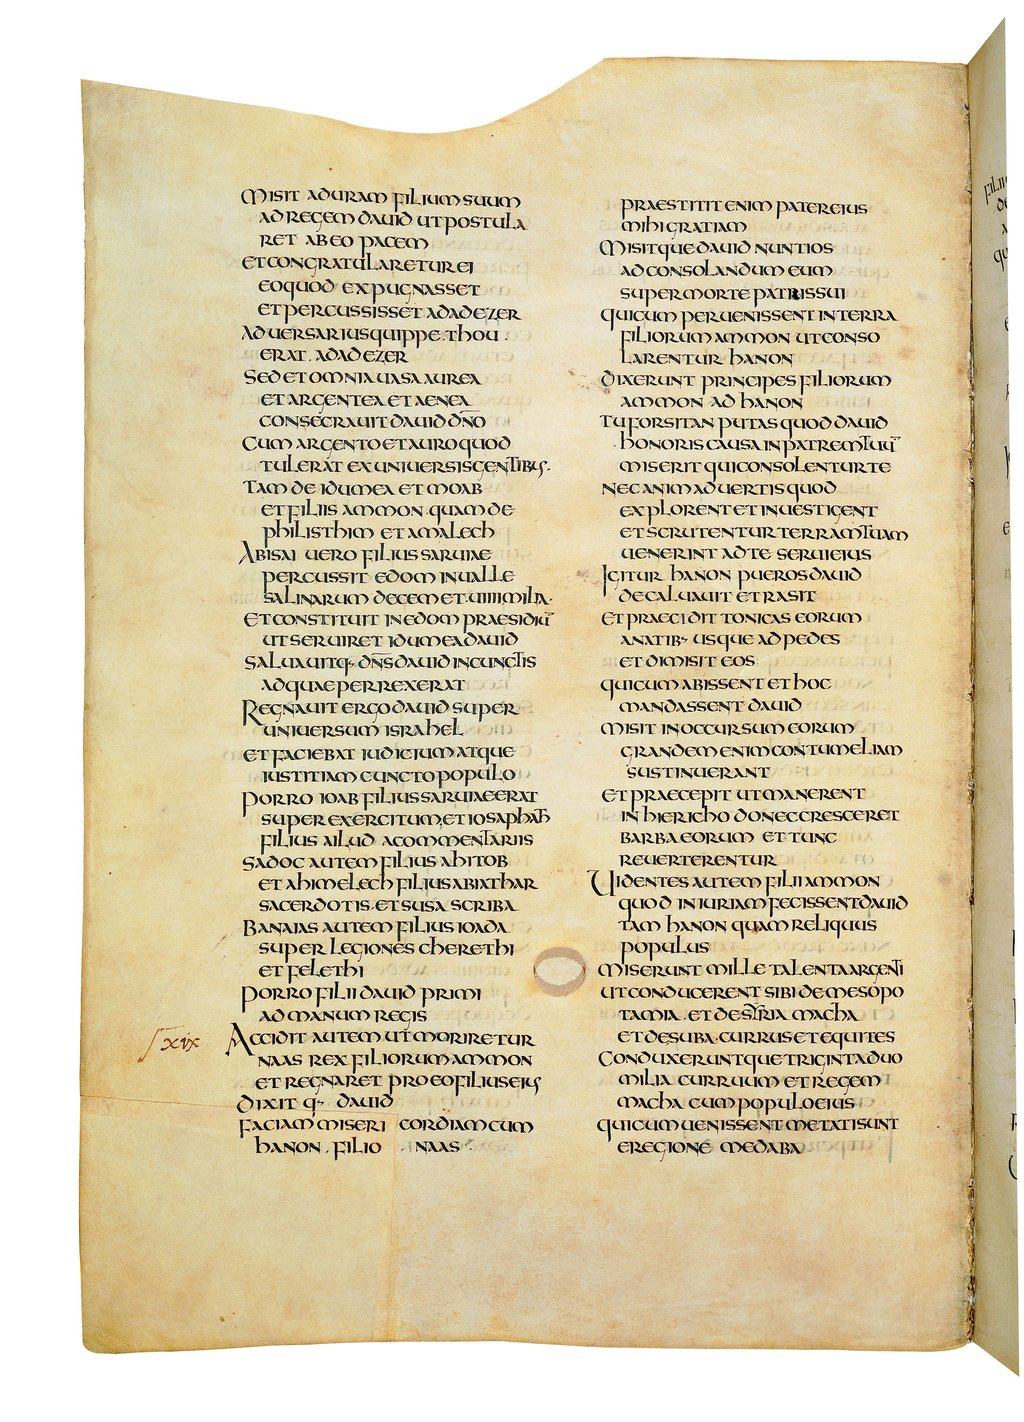 MISIT ADURAM FILIUM SUUM
AD REGEM DAUID UT POSTULA
RET AB EO PACEM
ET CONGRATULARETUR EI
EO QUOD EXPUGNASSET
ET PERCUSSISSET ADADEZER
ADUERSARIUS QUIPPE THOU
ERAT. ADADEZER
SED ET OMNIA UASA AUREA
ET ARGENTEA ET AENEA
CONSECRAUIT DAUID DN̄O
CUM ARGENTO ET AURO QUOD
TULERAT EX UNIUERSIS GENTIB;.
TAM DE IDUMEA ET MOAB
ET FILIIS AMMON QUAM DE
PHILISTHIM ET AMALECH
ABISAI UERO FILIUS SARUIAE
PERCUSSIT EDOM IN UALLE
SALINARUM DECEM ET UIIII MILIA.
ET CONSTITUIT IN EDOM PRAESIDIŪ
UT SERUIRET IDUMEA DAUID
SALUAUITQ; DN̄S DAUID IN CUNCTIS
AD QUAE PERREXERAT
REGNAUIT ERGO DAUID SUPER
UNIUERSUM ISRAHEL
ET FACIEBAT IUDICIUM ATQUE
IUSTITIAM CUNCTO POPULO
PORRO IOAB FILIUS SARUIAE ERAT
SUPER EXERCITUM, ET IOSAPHATH
FILIUS AILUD A COMMENTARIIS
SADOC AUTEM FILIUS AHITOB
ET AHIMELECH FILIUS ABIATHAR
SACERDOTIS. ET SUSA SCRIBA
BANAIAS AUTEM FILIUS IOADA
SUPER LEGIONES CHERETHI
ET FELETHI
PORRO FILII DAUID PRIMI
AD MANUM REGIS
XIX ACCIDIT AUTEM UT MORIRETUR
NAAS REX FILIORUM AMMON
ET REGNARET PRO EO FILIUS EIUS
DIXITQ; DAUID
FACIAM MISERICORDIAM CUM
HANON. FILIO NAAS
PRAESTITIT ENIM PATER EIUS
MIHI GRATIAM
MISITQUE DAUID NUNTIOS
AD CONSOLANDUM EUM
SUPER MORTE PATRIS SUI
QUI CUM PERUENISSENT IN TERRA
FILIORUM AMMON UT CONSO
LARENTUR HANON
DIXERUNT PRINCIPES FILIORUM
AMMON AD HANON
TU FORSITAN PUTAS QUOD DAUID
HONORIS CAUSA IN PATREM TUŪ
MISERIT QUI CONSOLENTUR TE
NEC ANIMADUERTIS QUOD
EXPLORENT ET INUESTIGENT
ET SCRUTENTUR TERRAM TUAM
UENERINT AD TE SERUI EIUS
IGITUR HANON PUEROS DAUID
DECALUAUIT ET RASIT
ET PRAECIDIT TONICAS EORUM
A NATIB; USQUE AD PEDES
ET DIMISIT EOS
QUI CUM ABISSENT ET HOC
MANDASSENT DAUID
MISIT IN OCCURSUM EORUM
GRANDEM ENIM CONTUMELIAM
SUSTINUERANT
ET PRAECEPIT UT MANERENT
IN HIERICHO DONEC CRESCERET
BARBA EORUM ET TUNC
REUERTERENTUR
UIDENTES AUTEM FILII AMMON
QUOD INIURIAM FECISSENT DAUID
TAM HANON QUAM RELIQUUS
POPULUS
MISERUNT MILLE TALENTA ARGENTI
UT CONDUCERENT SIBI DE MESOPO
TAMIA. ET DE SYRIA MACHA
ET DE SUBA. CURRUS ET EQUITES
CONDUXERUNTQUE TRIGINTA DUO
MILIA CURRUUM ET REGEM
MACHA CUM POPULO EIUS
QUI CUM UENISSENT METATI SUNT
E REGIONE MEDABA